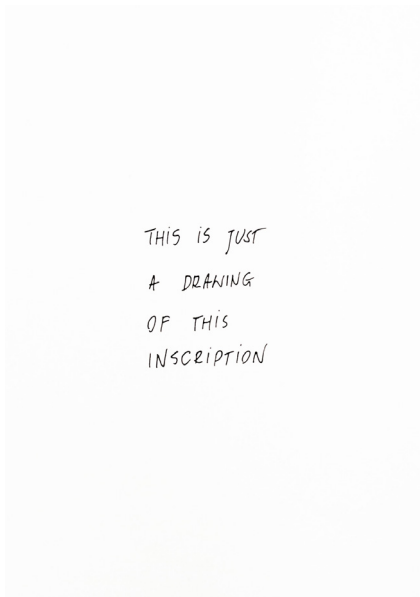 THIS IS JUST
A DRAWING
OF THIS
INSCRIPTION